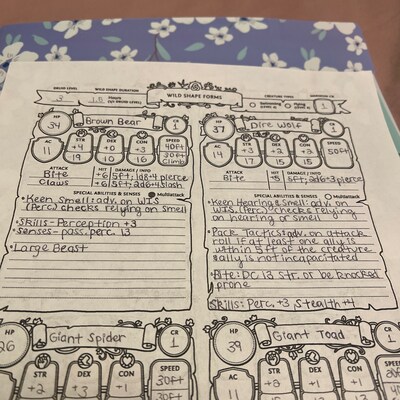 DRUID LEVEL
WILD SHAPE DURATION
3
WILD SHAPE FORMS
HP
34
Brown Bear
CR
1
AC
11
STR
+4
19
DEX
+0
10
CON
+3
16
SPEED
40ft
30ft
Climb
ATTACK
HIT
DAMAGE / INFO
Bite
+6
5ft; 1d8+4 pierce
Claws
+6
5ft; 2d6+4 slash
SPECIAL ABILITIES & SENSES
Multiattack
•Keen Smell: adv. on WIS
(Perc) checks relying on smell
•Skills - Perception +3
•Senses - pass. perc. 13
•Large Beast
HP
37
Dire Wolf
CR
1
AC
14
STR
+3
17
DEX
+2
15
CON
+2
15
SPEED
50ft
ATTACK
HIT
DAMAGE / INFO
Bite
5ft; 2d6+3 pierce
SPECIAL ABILITIES & SENSES
Multiattack
•Keen Hearing & Smell: adv. on
WIS. (Perc.) checks relying
on hearing or smell
•Pack Tactics: adv. on attack
roll if at least one ally is
within 5ft of the creature
& ally is not incapacitated
•Bite: DC 13 Str. or be knocked
prone
Skills: Perc. +3, Stealth +4
HP
26
Giant Spider
CR
1
STR
+2
DEX
+3
CON
+1
SPEED
30ft
30ft
HP
39
Giant Toad
CR
1
AC
11
STR
+2
DEX
+1
CON
+1
SPEED